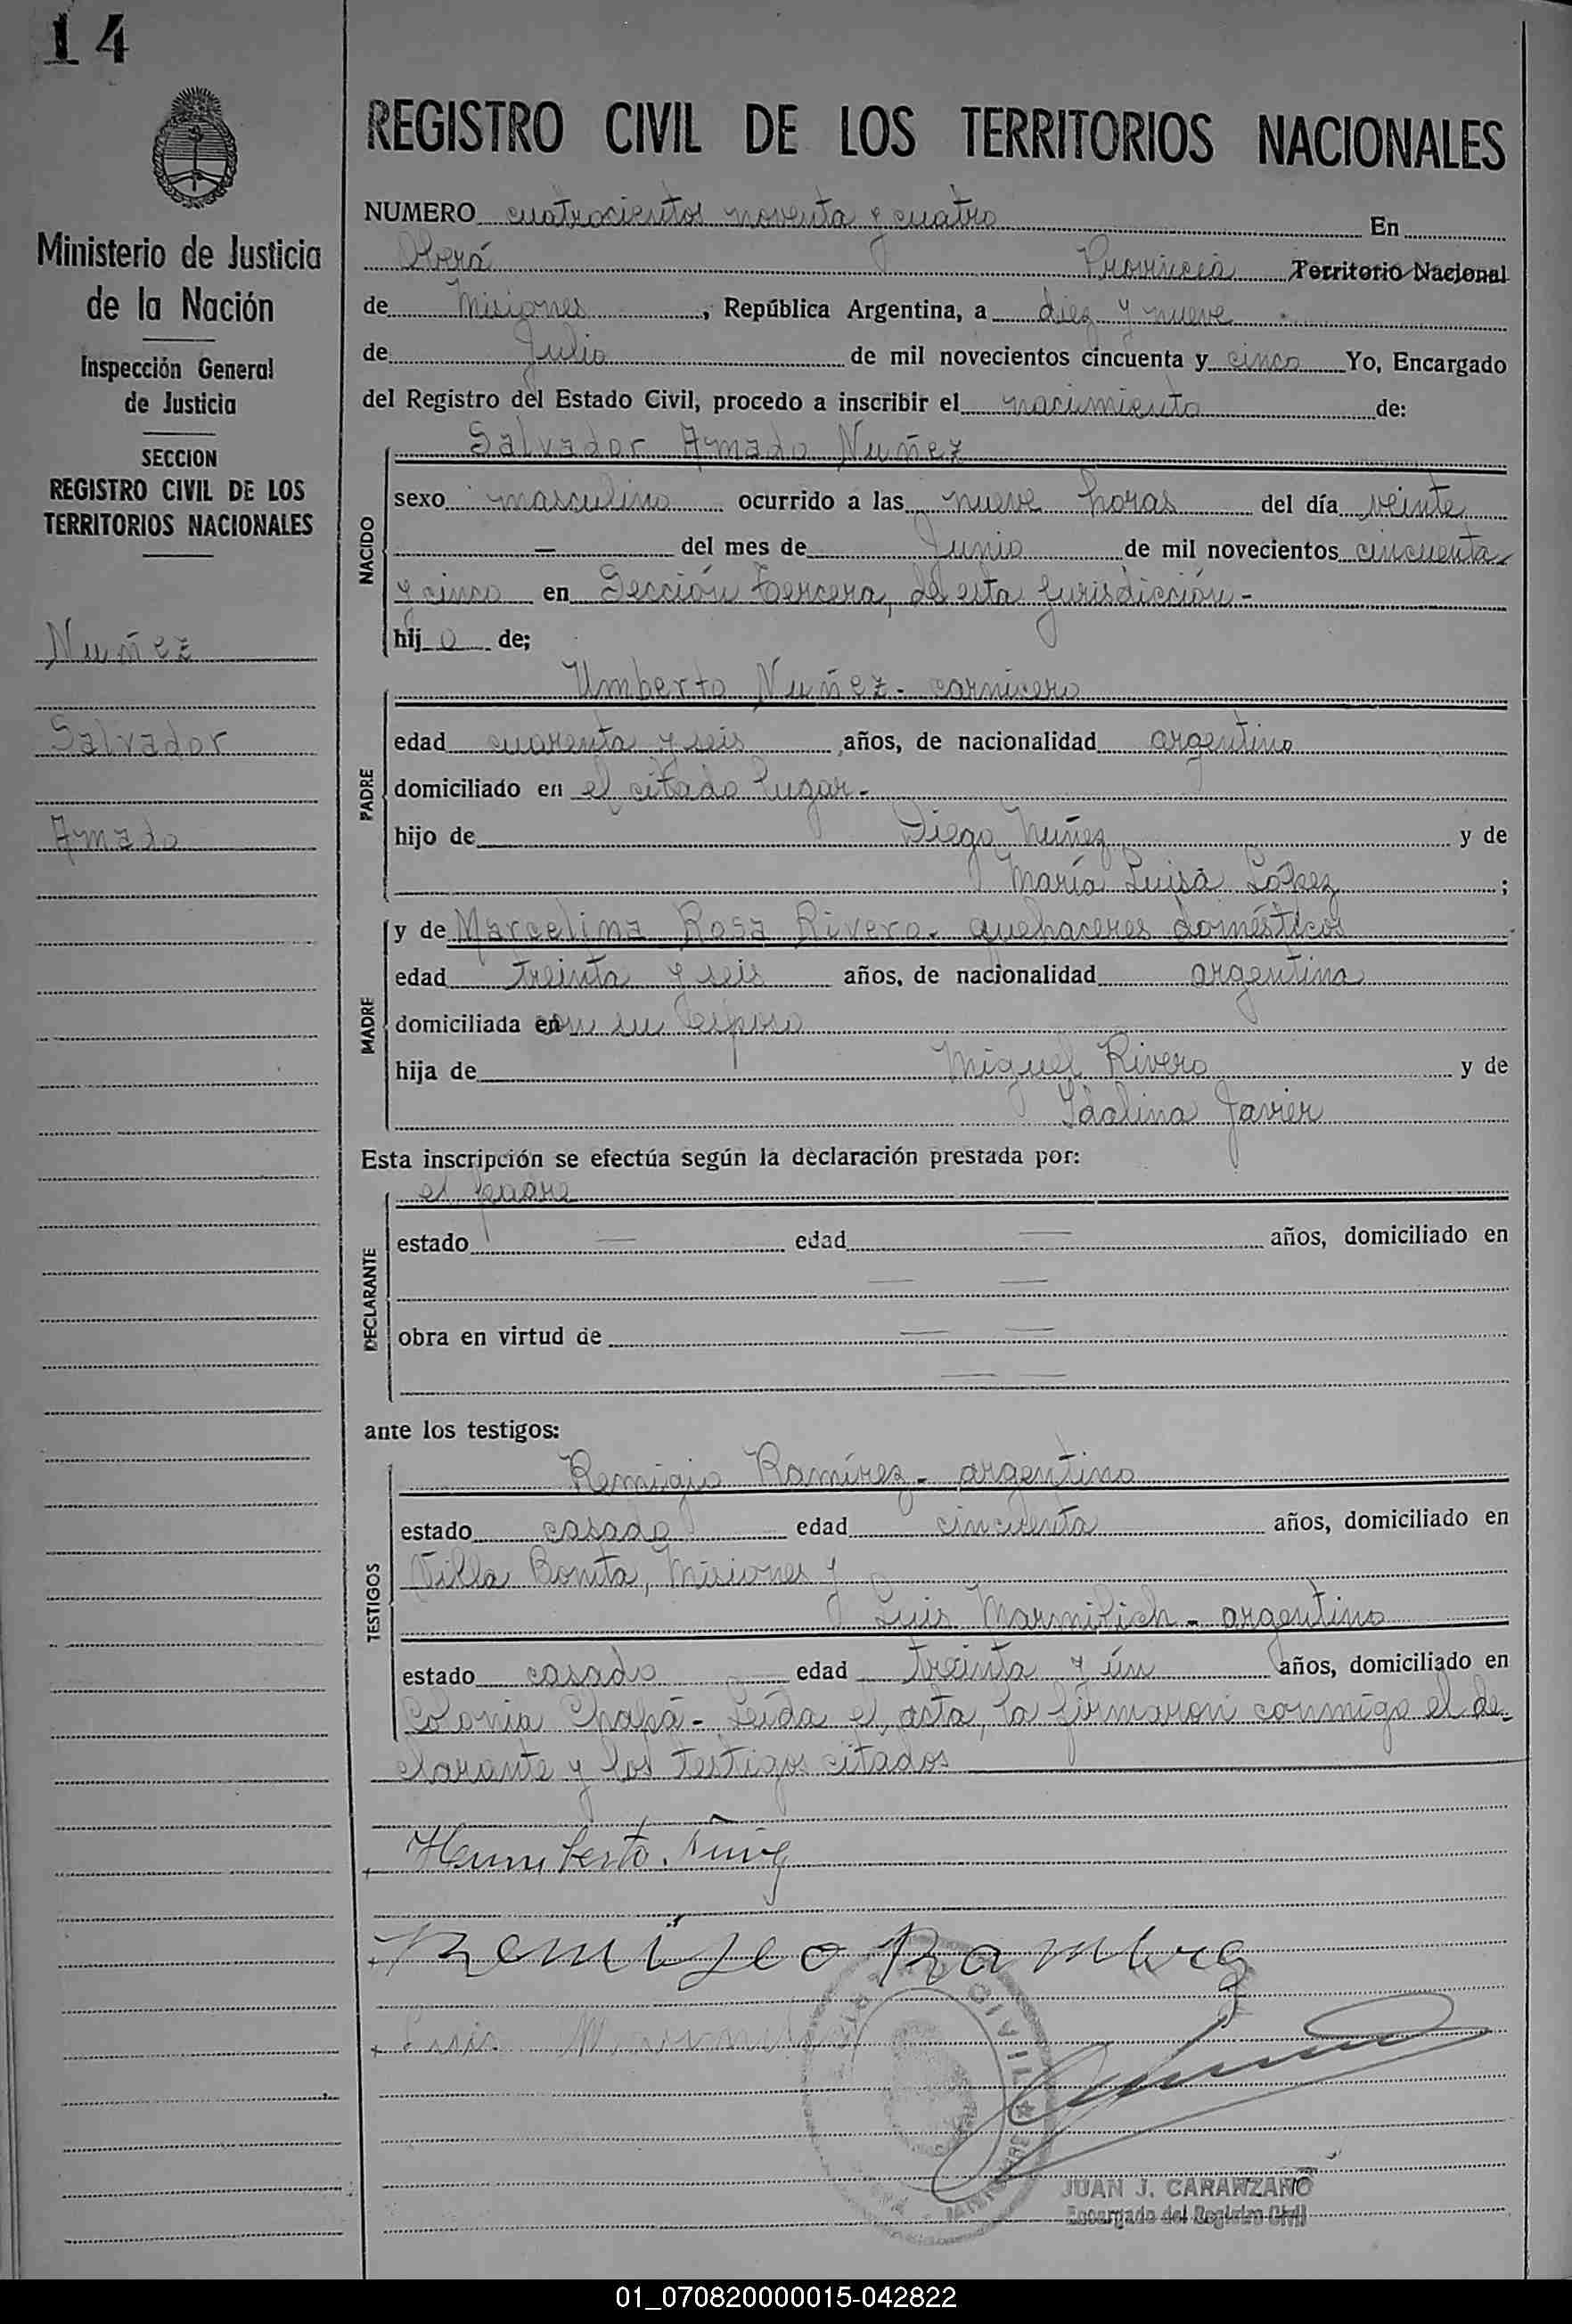 14
Ministerio de Justicia
de la Nación
Inspección General
de Justicia
SECCION
REGISTRO CIVIL DE LOS
TERRITORIOS NACIONALES
Nuñez
Salvador
Amado
REGISTRO CIVIL DE LOS TERRITORIOS NACIONALES
NUMERO cuatrocientos noventa y cuatro En
Oberá Provincia Territorio Nacional
de Misiones, República Argentina, a diez y nueve
de Julio de mil novecientos cincuenta y cinco Yo, Encargado
del Registro del Estado Civil, procedo a inscribir el nacimiento de:
Salvador Amado Nuñez
NACIDO
sexo masculino ocurrido a las nueve horas del día veinte
— del mes de Junio de mil novecientos cincuenta
y cinco en Sección tercera, de esta jurisdicción-
hijo de;
Umberto Nuñez - carnicero
PADRE
edad cuarenta y seis años, de nacionalidad argentino
domiciliado en el citado lugar-
hijo de Diego Nuñez y de
María Luisa López;
y de Marcelina Rosa Rivero- quehaceres domésticos
MADRE
edad treinta y seis años, de nacionalidad argentina
domiciliada en con su esposo
hija de Miguel Rivero y de
Idalina Javier
Esta inscripción se efectúa según la declaración prestada por:
el padre
DECLARANTE
estado — edad — años, domiciliado en
— —
obra en virtud de — —
— —
ante los testigos:
Remigio Ramírez- argentino
TESTIGOS
estado casado edad cincuenta años, domiciliado en
Villa Bonita, Misiones y
Luis - argentino
estado casado edad treinta y ún años, domiciliado en
Colonia Chapá- Leída el acta, la firmaron conmigo el de-
clarante y los testigos citados
Humberto Nuñez
Remijeo Ramirez
Luis
CIVIL
JUAN J. CARANZANO
Encargado del Registro Civil
01_070820000015-042822